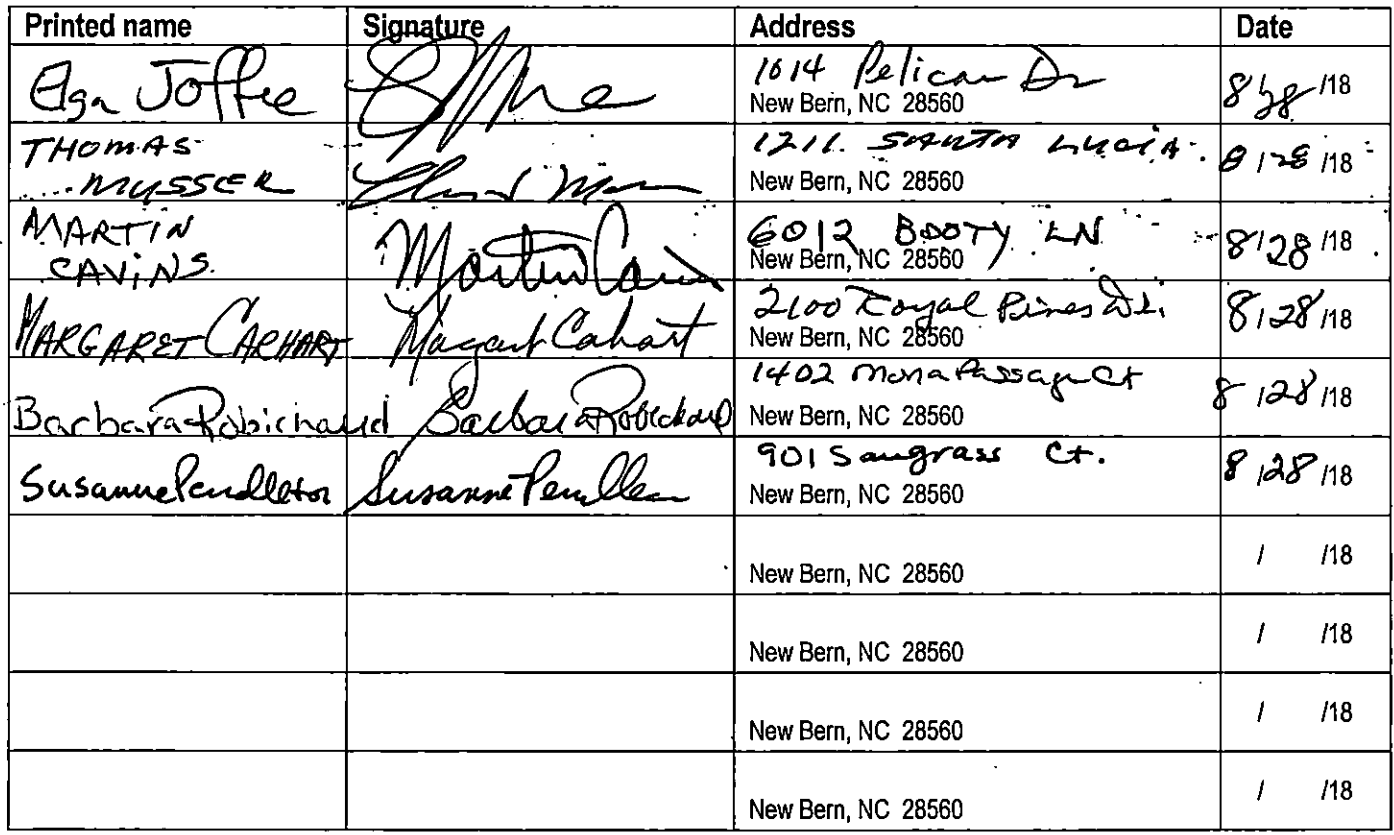 Printed name Signature Address Date
Elga Joffee 1014 Pelican Dr
New Bern, NC 28560 8/28/18
THOMAS 1211. SANTA LUCIA.
MUSSER New Bern, NC 28560 8/28/18
MARTIN Martin Cavins 6012 BOOTY LN
CAVINS. New Bern, NC 28560 8/28/18
MARGARET CARHART Margaret Carhart 2100 Royal Pines Dr.
New Bern, NC 28560 8/28/18
1402 Mona Passage Ct
Barbara Robichaud Barbara Robichaud New Bern, NC 28560 8/28/18
901 Sawgrass Ct.
Susanne Pendleton Susanne Pendleton New Bern, NC 28560 8/28/18
New Bern, NC 28560 / /18
New Bern, NC 28560 / /18
New Bern, NC 28560 / /18
New Bern, NC 28560 / /18